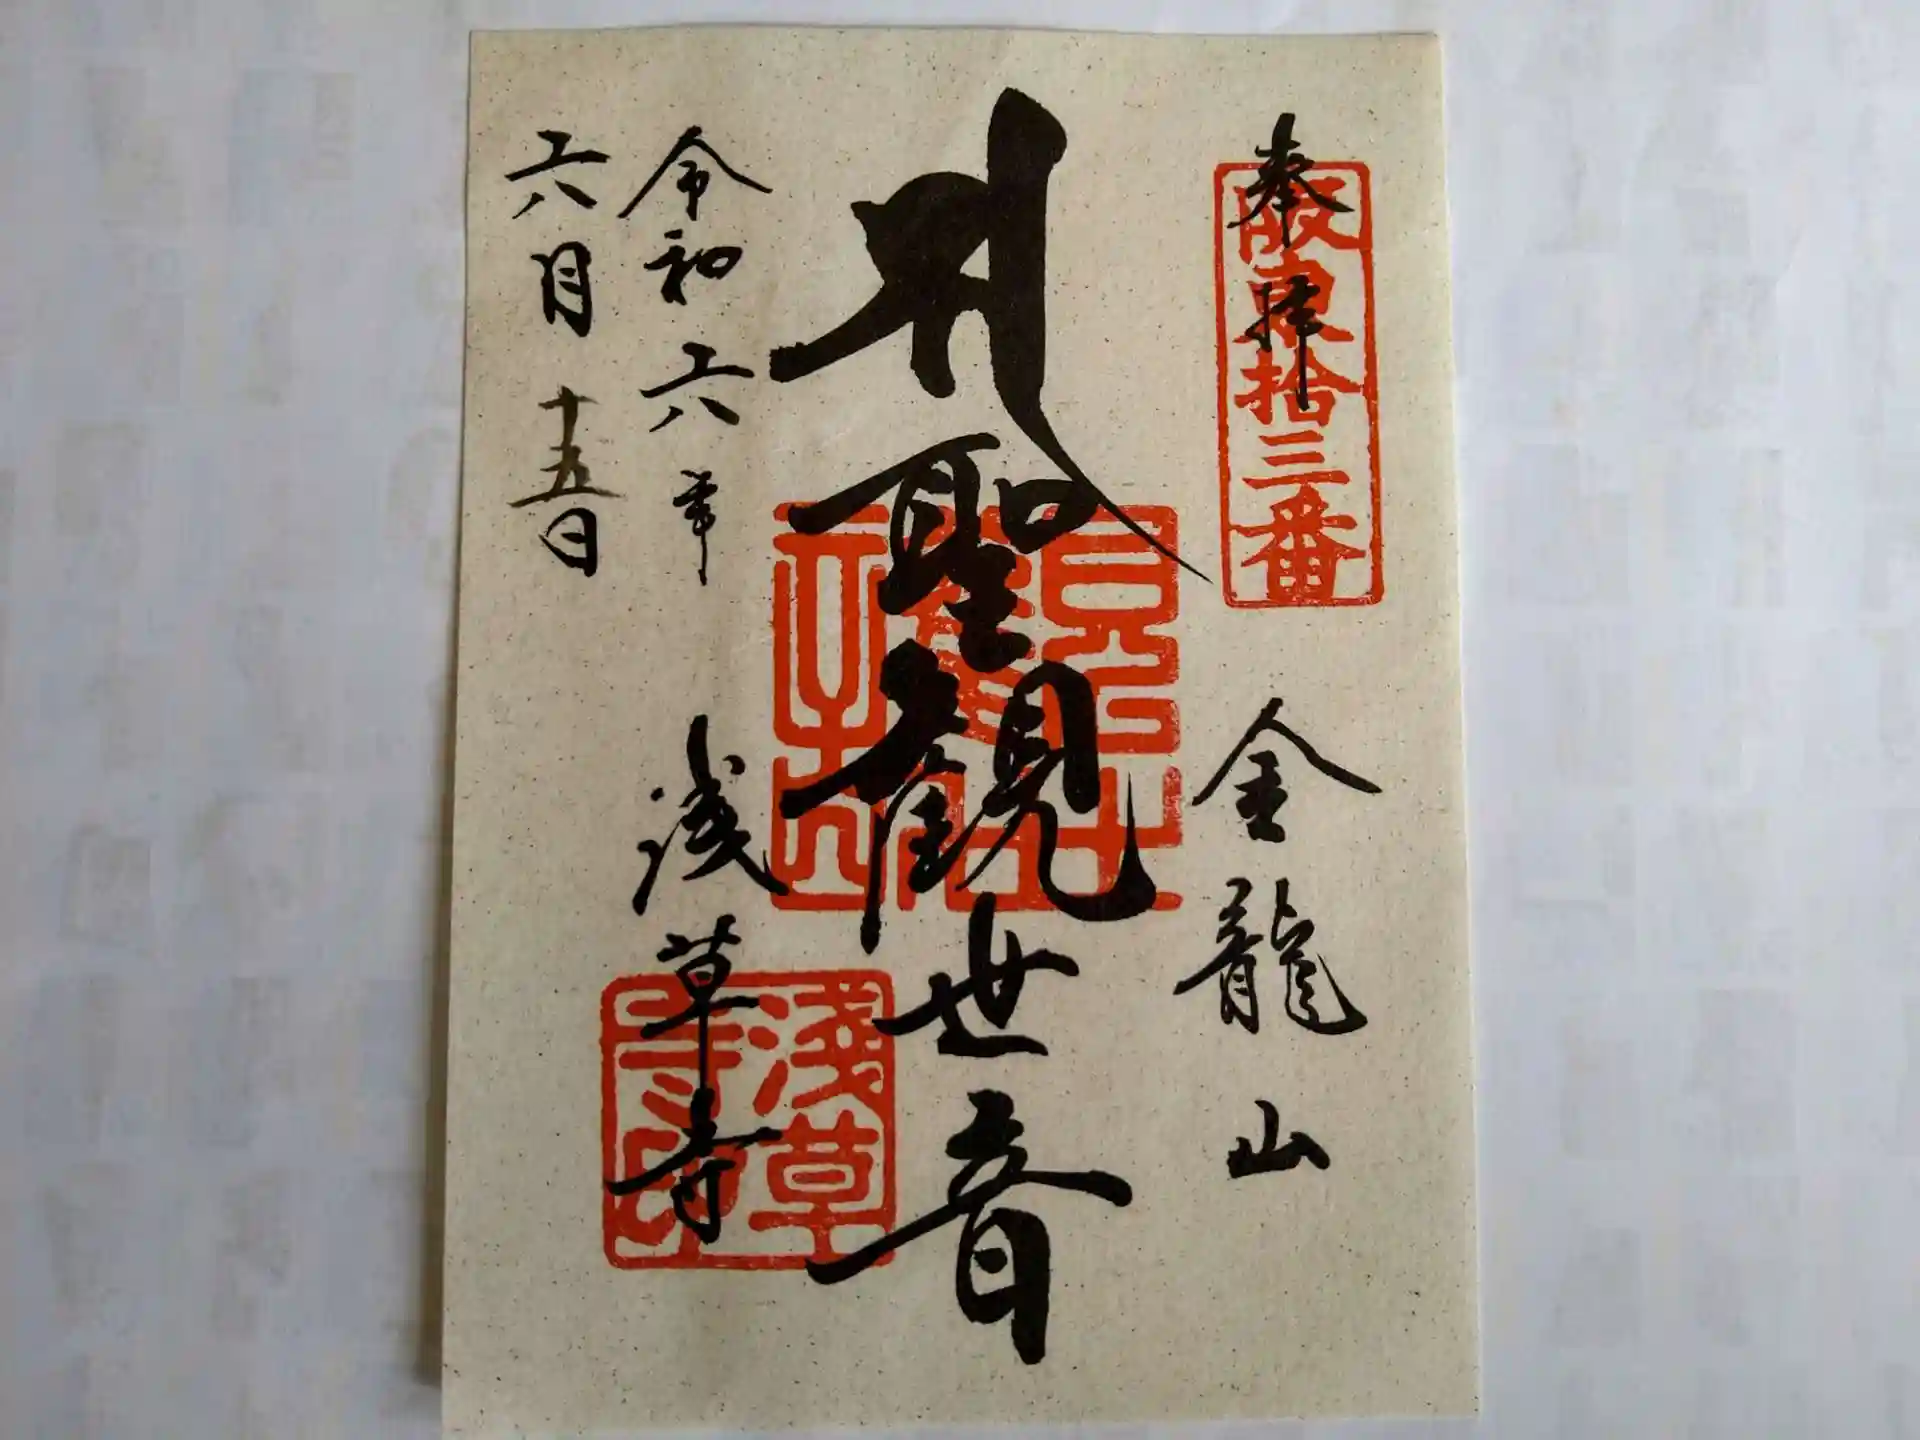 奉拝
阪東拾三番
金龍山
聖観世音
浅草寺
淺草寺印
令和六年
六月十五日